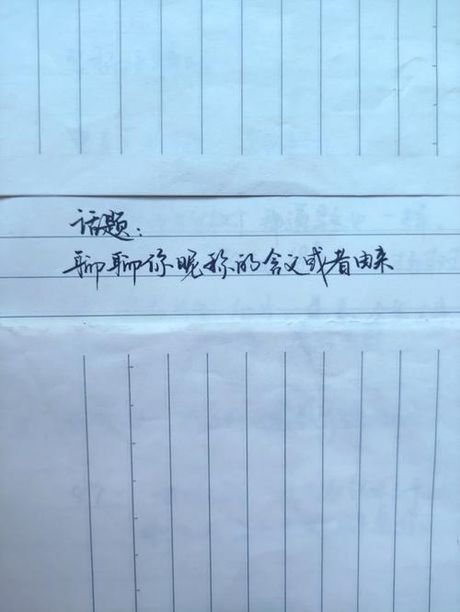 话题：
聊聊你昵称的含义或者由来